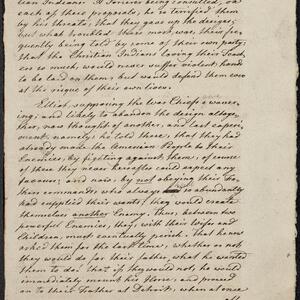 lian Indians. A Torwee being consulted, on
each of these proposals; he so terrified them
by his threats, that they gave up the design;
but what troubled them more, was, their fre-
quently being told by some of their own party;
that the Christian Indians loving their Teach-
ers so much, would never suffer violent hands
to be laid on them; but would defend them even
at the risque of their own lives.
Elliot, supposing the War Chiefs were waver-
ing; and likely to abandon the design altoge-
ther, now thought of another, and last experi-
ment, namely; he told them, that they had
already made the American People to their
Enemies, by fighting against them; of course
of these they never hereafter could expect any
favour; and now, by not obeying their Fa-
thers commands, who always so abundantly
had supplied their wants; they would create
themselves another Enemy. Thus, between two
powerful Enemies, they, with their Wifes and
Children, must eventually perish. That he now
asked them for the last time, whether or not
they would do for their father, what he wanted
them to do? that if they would not, he would
immediately mount his Horse, and proceed
on to their Father at Detroit, when at once
all